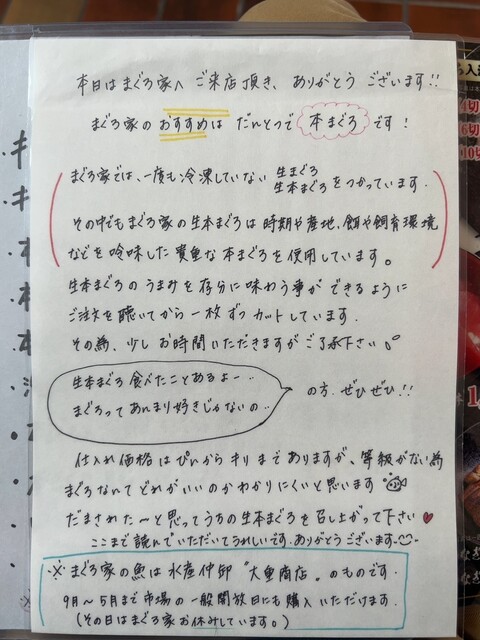 本日はまぐろ家へ ご来店頂き、ありがとう ございます!!
まぐろ家の おすすめは だんとつで 本まぐろ です!
まぐろ家では、一度も冷凍していない 生まぐろ 生本まぐろ をつかっています.
その中でもまぐろ家の生本まぐろは時期や産地、餌や飼育環境
などを吟味した貴重な本まぐろを使用しています。
生本まぐろのうまみを存分に味わう事ができるように
ご注文を聴いてから一枚ずつカットしています.
その為、少しお時間いただきますがご了承下さい
生本まぐろ食べたことあるよー..
まぐろってあんまり好きじゃないの..
の方.ぜひぜひ!!
仕入れ価格はぴんからキリまでありますが、等級がない為
まぐろなんて どれがいいのかわかりにくいと思います
だまされた〜と思ってうちの生本まぐろを召し上がって下さい♥
ここまで読んでいただいてうれしいです.ありがとうございます
※まぐろ家の魚は水産仲卸"大魚商店"のものです.
9月〜5月まで市場の一般開放日にも購入いただけます.
(その日はまぐろ家お休みしています。)
4切
6切
10切